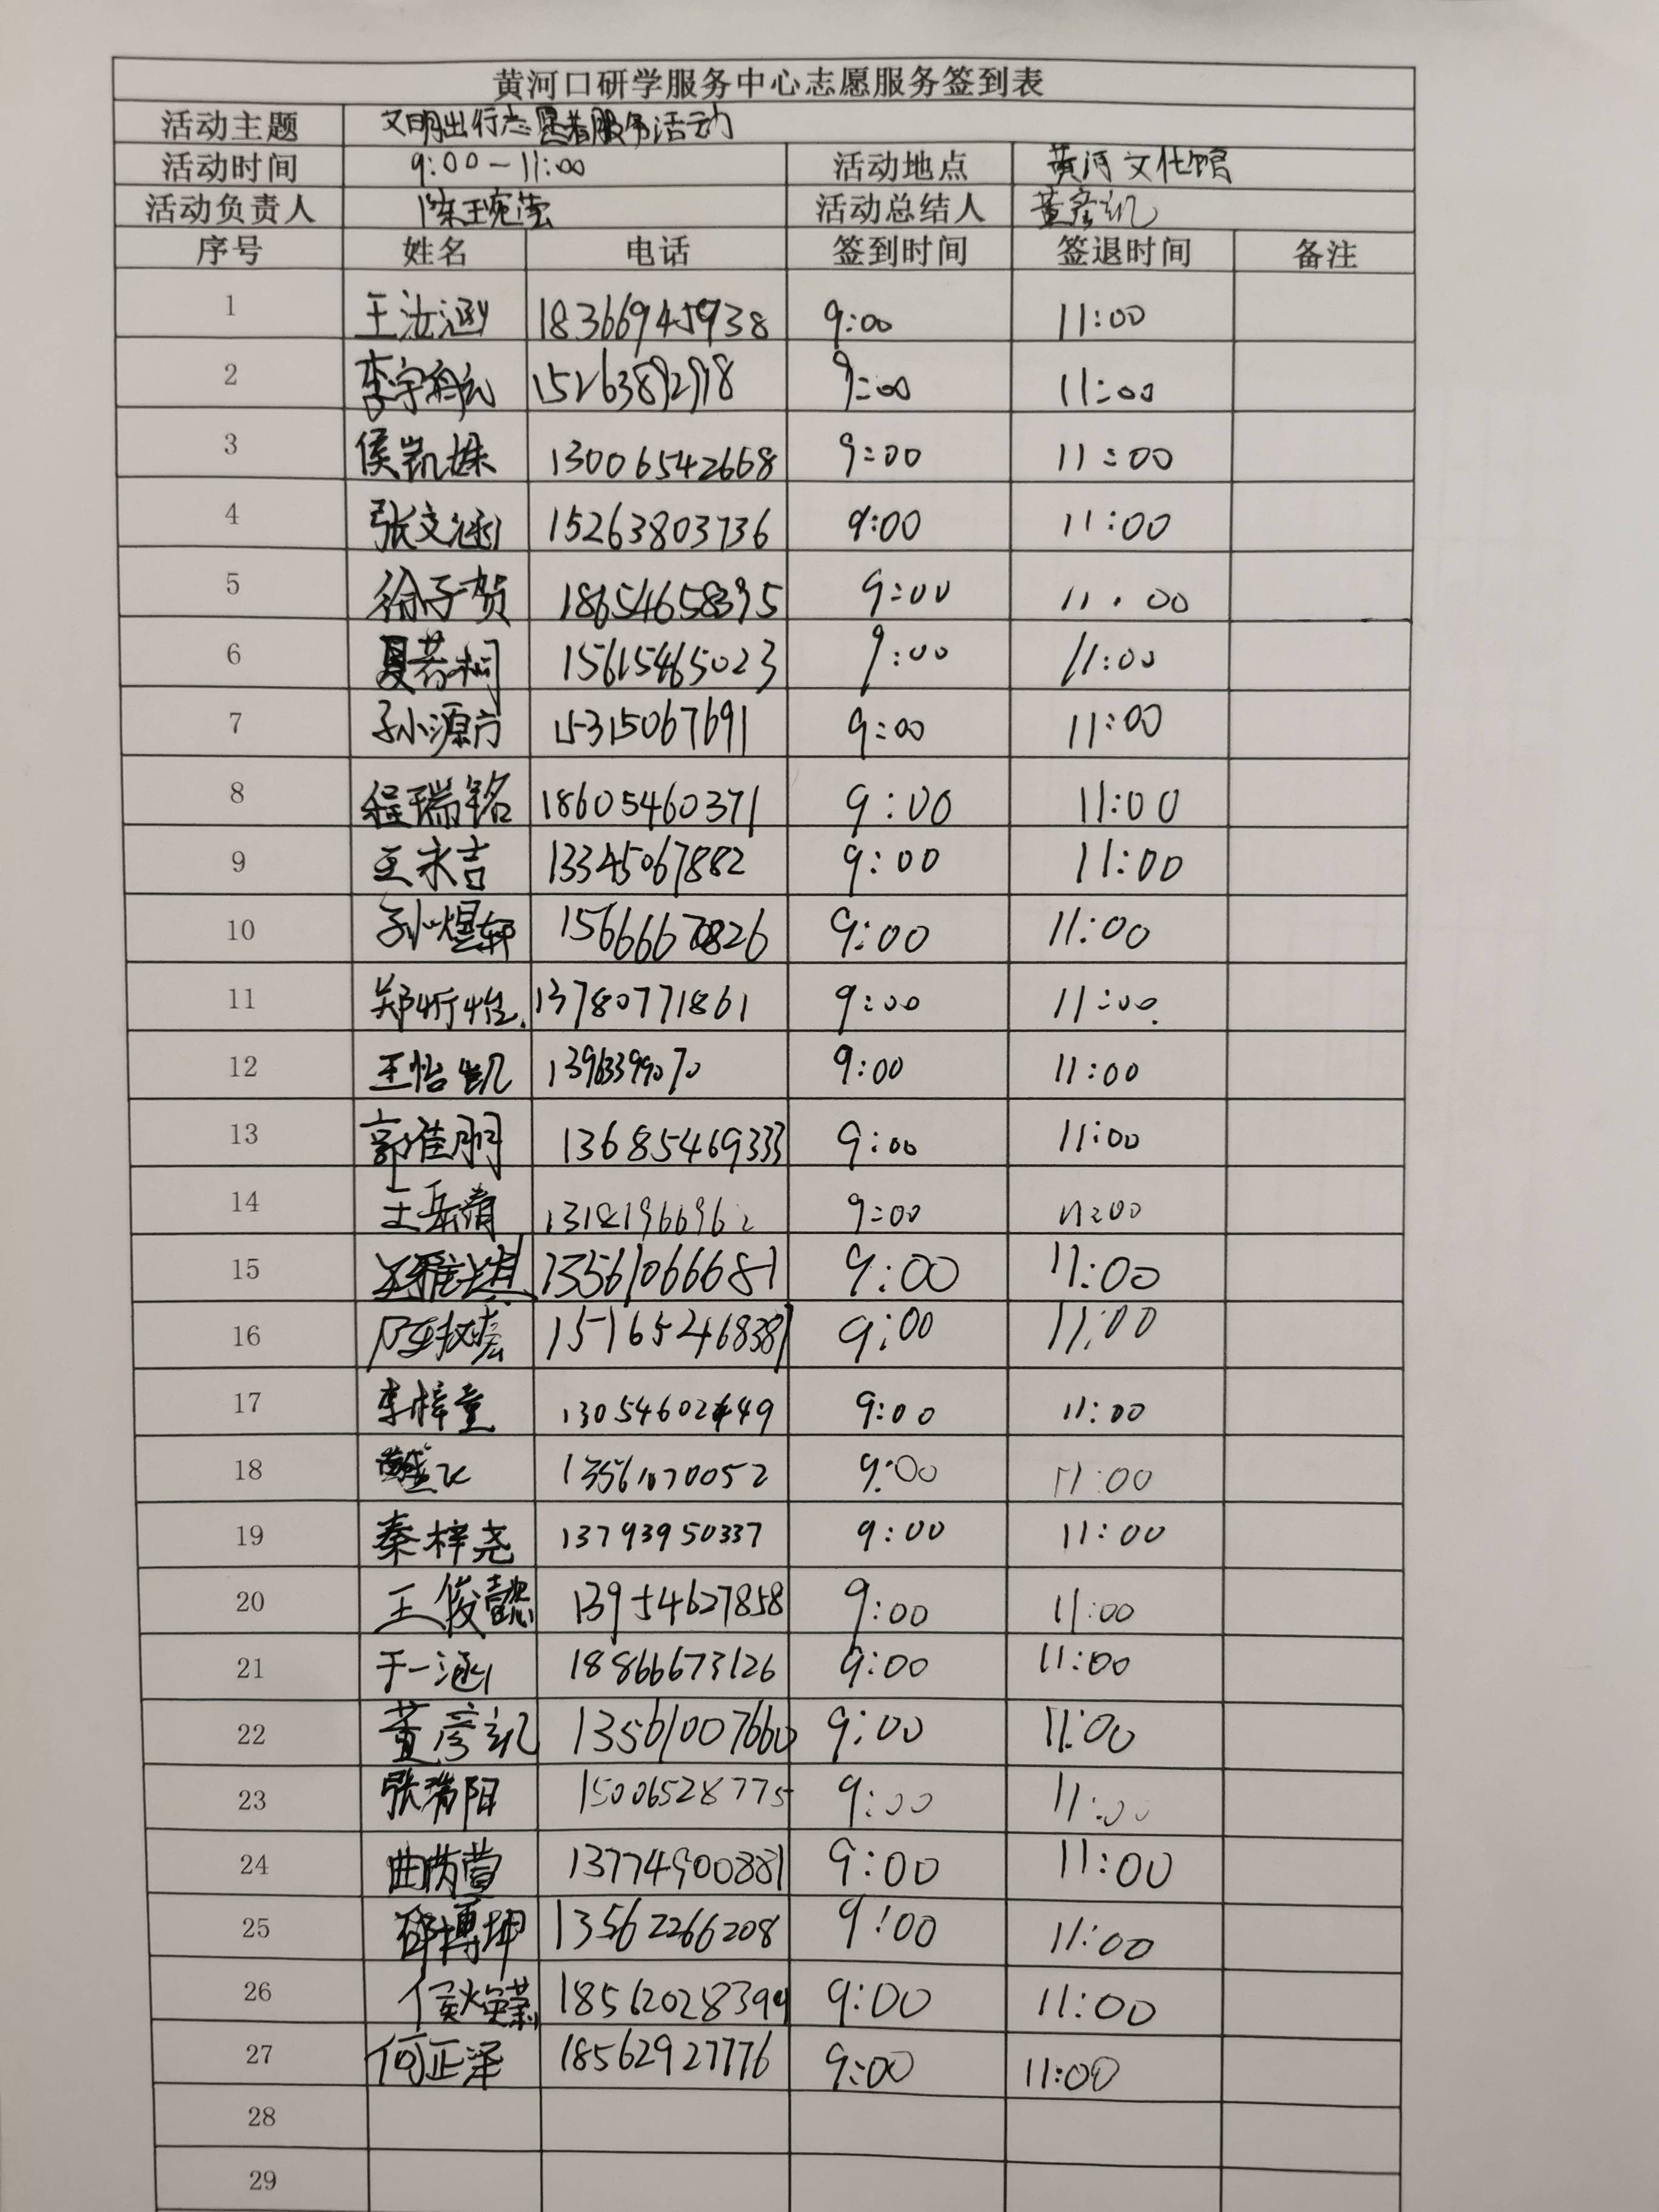 黄河口研学服务中心志愿服务签到表
活动主题 文明出行志愿者服务活动
活动时间 9:00-11:00 活动地点 黄河文化馆
活动负责人 陈琬莹 活动总结人 董彦讥
序号 姓名 电话 签到时间 签退时间 备注
1 王汝涵 18366945938 9:00 11:00
2 15263892918 9:00 11:00
3 侯凯姝 13006542668 9:00 11:00
4 张文涵 15263803736 9:00 11:00
5 徐子贺 18654658395 9:00 11:00
6 夏若桐 15615465023 9:00 11:00
7 孙源方 15315067691 9:00 11:00
8 程瑞铭 18605460371 9:00 11:00
9 王永吉 13345067882 9:00 11:00
10 孙煜轩 15666670826 9:00 11:00
11 郑昕怡 13780771861 9:00 11:00
12 王怡凯 13963399070 9:00 11:00
13 郭佳朋 13685469333 9:00 11:00
14 王岳甯 13181966962 9:00 11:00
15 13561066681 9:00 11:00
16 15165246838 9:00 11:00
17 李梓童 9:00 11:00
18 13561070052 9:00 11:00
19 秦梓尧 13793950337 9:00 11:00
20 王俊懿 13954627858 9:00 11:00
21 于一涵 18866673126 9:00 11:00
22 董彦讥 13561007660 9:00 11:00
23 张瀚阳 15006528775 9:00 11:00
24 曲芮萱 13774900881 9:00 11:00
25 邱博坤 13562266208 9:00 11:00
26 18562028399 9:00 11:00
27 何正泽 18562927776 9:00 11:00
28
29